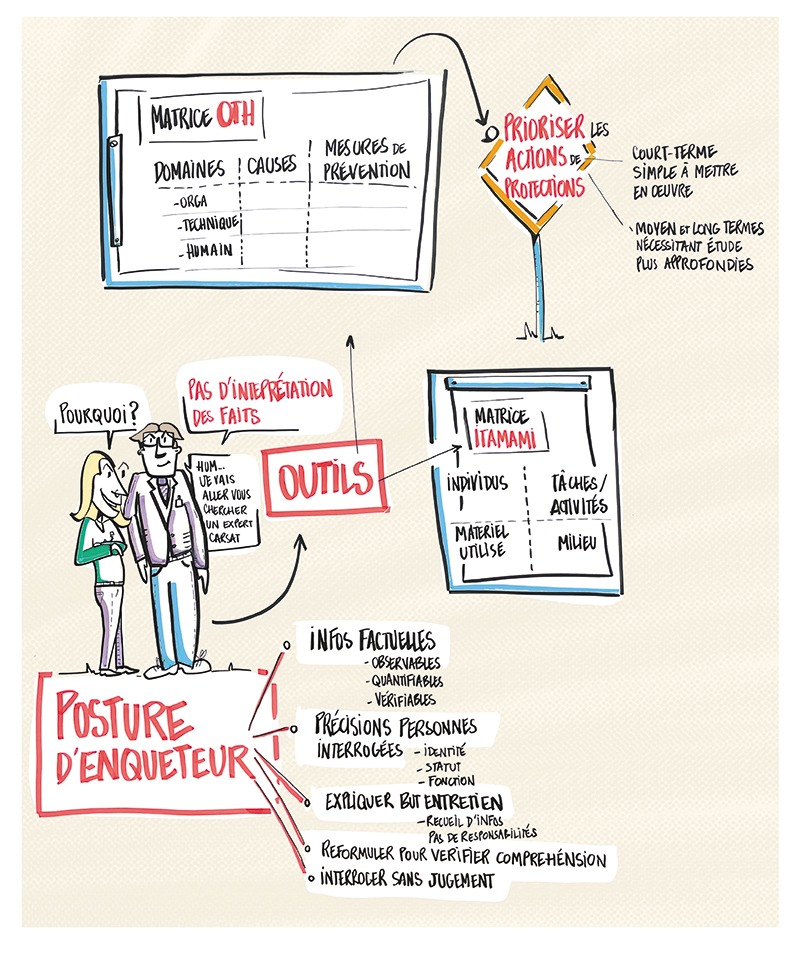 MATRICE OTH
DOMAINES
CAUSES
MESURES DE
PRÉVENTION
-ORGA
-TECHNIQUE
-HUMAIN
PRIORISER LES
ACTIONS DE
PROTECTIONS
COURT-TERME
SIMPLE À METTRE
EN OEUVRE
MOYEN ET LONG TERMES
NÉCESSITANT ÉTUDE
PLUS APPROFONDIES
POURQUOI?
PAS D'INTEPRÉTATION
DES FAITS
HUM...
JE VAIS
ALLER VOUS
CHERCHER
UN EXPERT
CARSAT
OUTILS
MATRICE
ITAMAMI
INDIVIDUS
TÂCHES/
ACTIVITÉS
MATÉRIEL
UTILISÉ
MILIEU
POSTURE
D'ENQUETEUR
INFOS FACTUELLES
-OBSERVABLES
-QUANTIFIABLES
-VÉRIFIABLES
PRÉCISIONS PERSONNES
INTERROGÉES -IDENTITÉ
-STATUT
-FONCTION
EXPLIQUER BUT ENTRETIEN
-RECUEIL D'INFOS
PAS DE RESPONSABILITÉS
REFORMULER POUR VÉRIFIER COMPREHÉNSION
INTERROGER SANS JUGEMENT